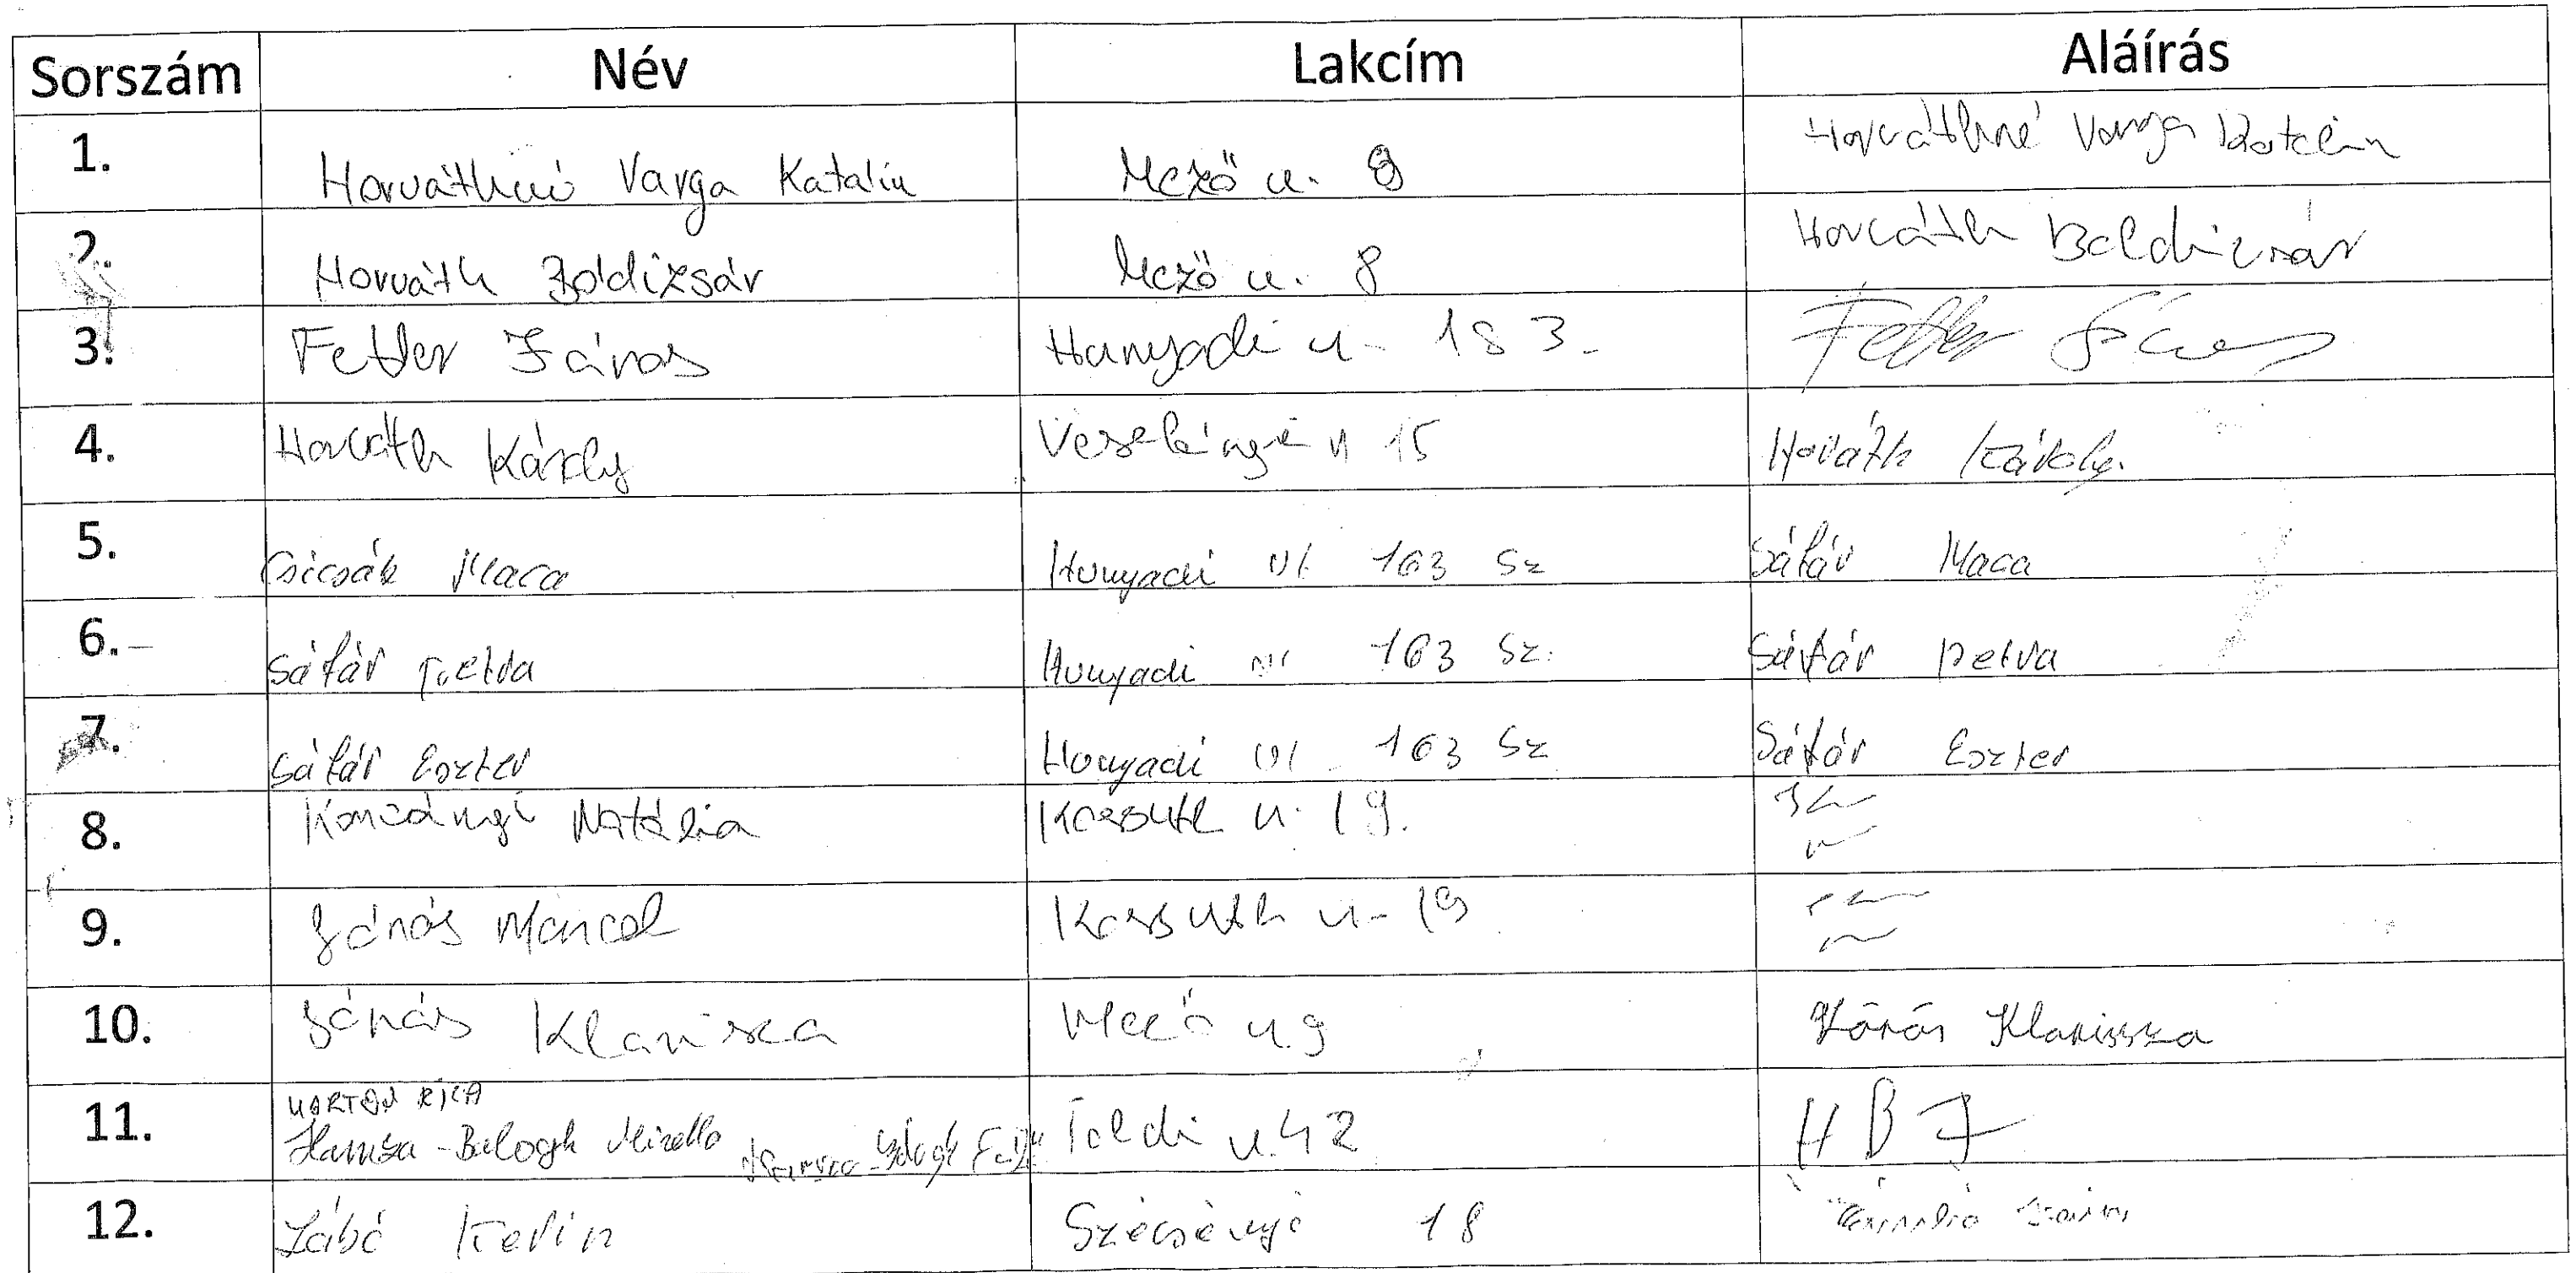 Sorszám Név Lakcím Aláírás
1. Horváthné Varga Katalin Mező u. 8 Horváthné Varga Katalin
2. Horváth Boldizsár Mező u. 8 Horváth Boldizsár
3. Fetter János Hunyadi u. 183. Fetter János
4. Horváth Károly Veselényi u 15 Horváth Károly
5. Csicsák Maca Hunyadi út 163 Sz Sáfár Maca
6. Sáfár Petra Hunyadi út 163 Sz. Sáfár Petra
7. Sáfár Eszter Hunyadi út 163 Sz Sáfár Eszter
8. Natália Kossuth u. 19.
9. Jónás Marcel Kossuth u. 19
10. Jónás Klarissza Mező u. 9 Jónás Klarissza
11. Hamza-Balogh Mirella Toldi u. 42 H B F
12. Kevin 18